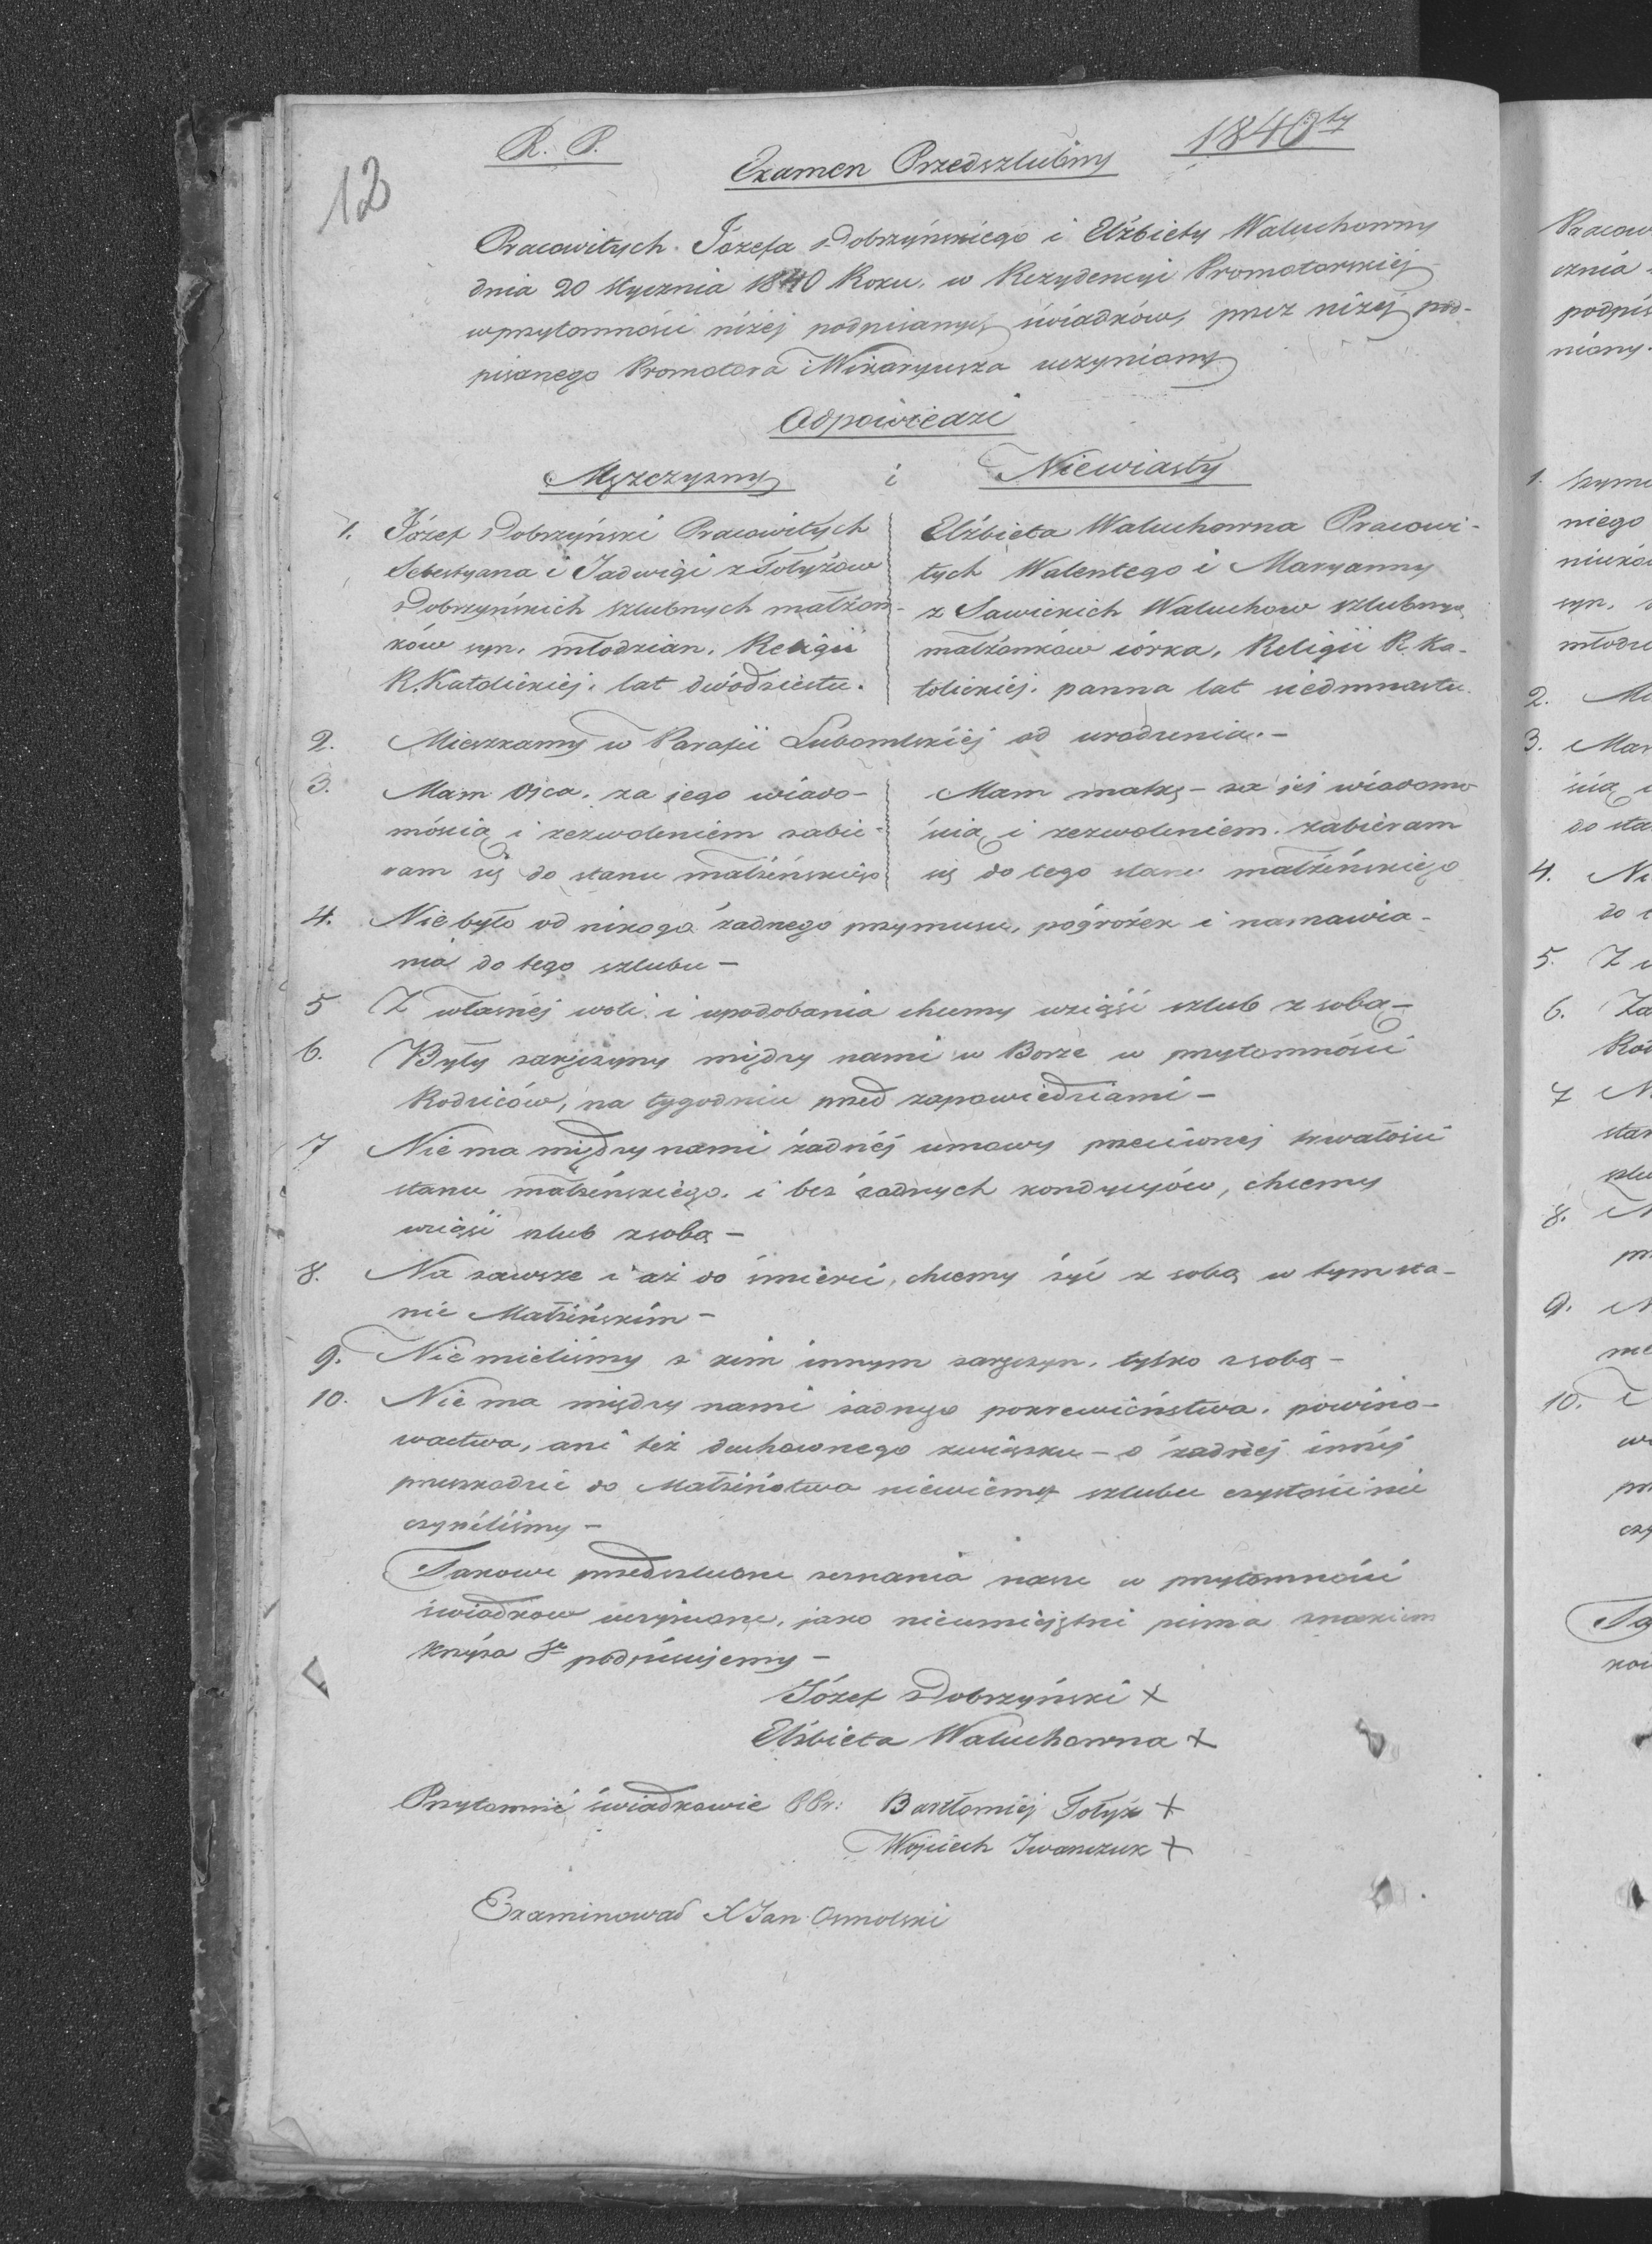 12
R. P.
1840ty
Examen Przedszlubny
Pracowitych Józefa Dobrzyńskiego i Elżbiety Waluchowny
dnia 20 Stycznia 1840 Roku, w Rezydencyi Promotorskiej
w przytomności niżej podpisanych świadków, przez niżej pod-
pisanego Promotora i Wikaryusza uczyniony
Odpowiedzi
Męszczyzny i Niewiasty
1. Józef Dobrzyński Pracowitych
Sebestyana i Jadwigi z Tołyżów
Dobrzyńskich szlubnych małżon-
ków syn, młodzian, Religii
R. Katolickiej, lat dwódziestu.
Elżbieta Waluchowna Pracowi-
tych Walentego i Maryanny
z Sawickich Waluchow szlubnych
małżonków córka, Religii R. Ka-
tolickiej, panna lat siedmnastu.
2. Mieszkamy w Parafii Lubomlskiéj od urodzenia.-
3. Mam Ojca, za jego wiado-
mością i zezwoleniem zabie-
ram się do stanu małżeńskiego
Mam matkę - za jej wiadomo
ścią i zezwoleniem zabieram
się do tego stanu małżeńskiego
4. Nie było od nikogo żadnego przymusu, pogróżek i namawia-
nia do tego szlubu -
5 Z własnéj woli i upodobania chcemy wziąść szlub z sobą -
6. Były zaręczyny między nami w Borze w przytomności
Rodziców, na tygodniu przed zapowiedziami -
7 Nie ma między nami żadnéj umowy przeciwnej trwałości
stanu małżeńskiego, i bez żadnych kondycyów, chcemy
wziąść szlub z sobą -
8. Na zawsze i aż do śmierci, chcemy żyć z sobą w tym sta-
nie Małżeńskim -
9. Nie mieliśmy z kim innym zaręczyn, tylko z sobą -
10. Nie ma między nami żadnego pokrewieństwa, powino-
wactwa, ani też duchownego związku - o żadnéj innéj
przeszkodzie do Małżeństwa niewiemy szlubu czystości nie
czyniliśmy -
Takowe przedszlubne zeznania nasze w przytomności
świadkow uczynione, jako nieumiejętni pisma znakiem
krzyża S podpisujemy -
Józef Dobrzyński X
Elżbieta Waluchowna X
Przytomnie świadkowie PPr: Bartłomiéj Tołyż X
Wojciech Iwanczuk X
Examinował X Jan Osmolski
Pracow
cznia
podpis
niony.
1. Szym
niego
młodz
2. Mi
3. Mam
ścią
do sta
4. Ni
do
5. Z
6. Za
Rod
7 N
stan
szlu
8.
9.
10.